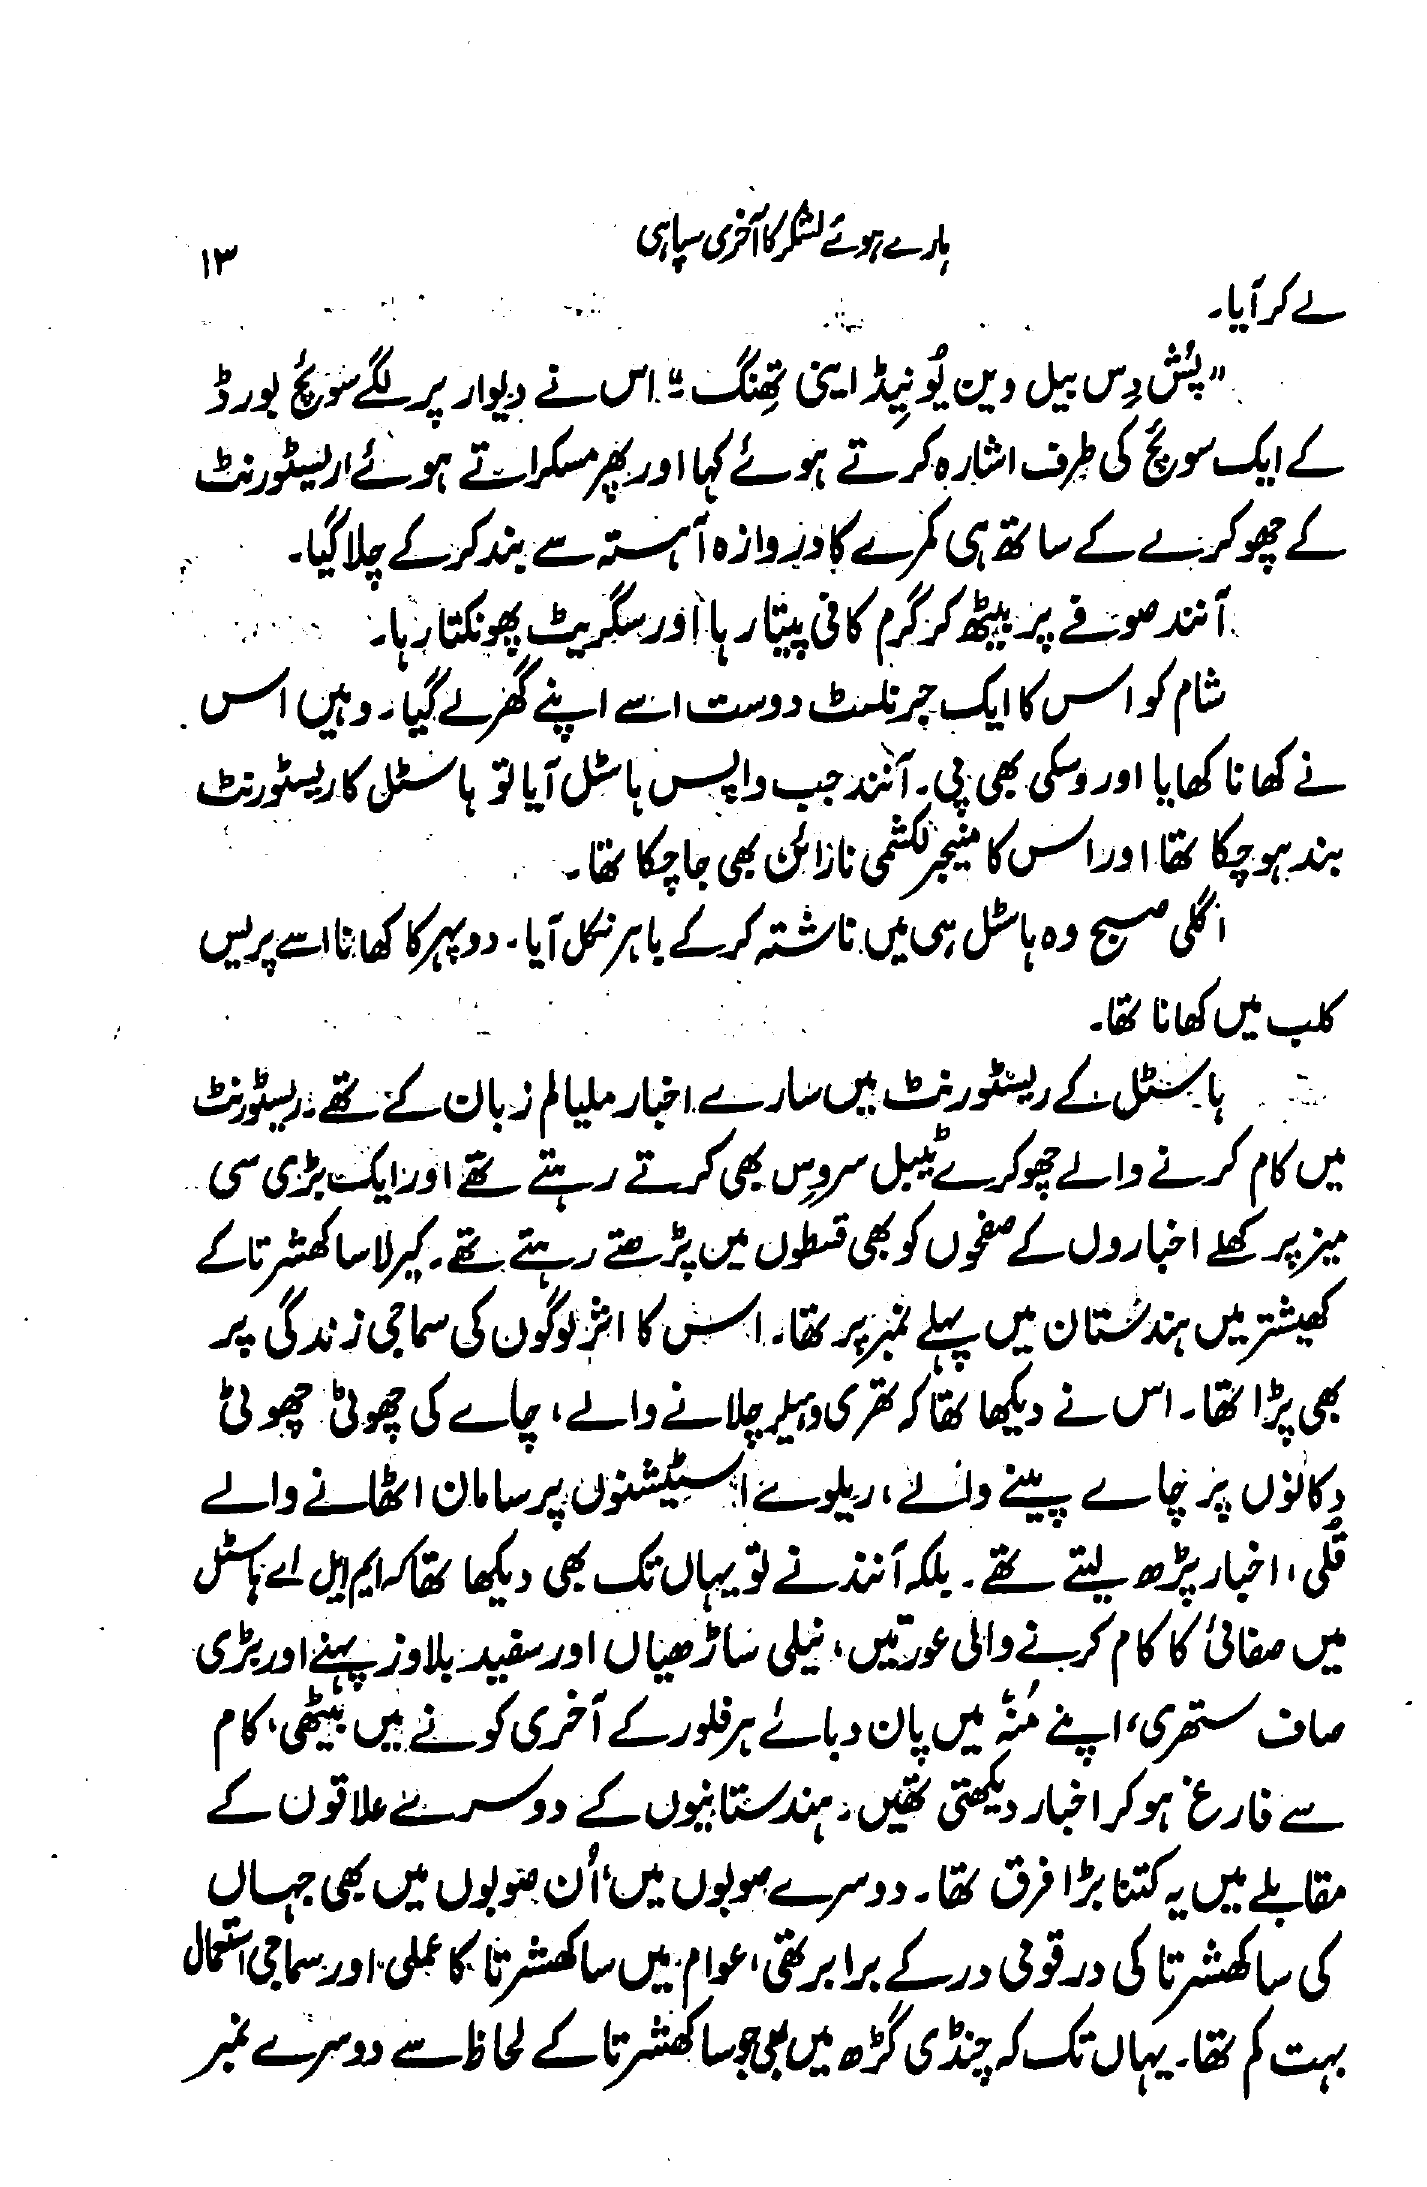 ہارے ہوئے لشکر کا آخری سپاہی
۱۳
لے کر آیا۔
”پُش دِس بیل وین یُو نِیڈ اینی تھِنگ“ اس نے دیوار پر لگے سوئچ بورڈ
کے ایک سوئچ کی طرف اشارہ کرتے ہوئے کہا اور پھر مسکراتے ہوئے اریسٹورنٹ
کے چھوکرے کے ساتھ ہی کمرے کا دروازہ آہستہ سے بند کر کے چلا گیا۔
آنند صوفے پر بیٹھ کر گرم کافی پیتا رہا اور سگریٹ پھونکتا رہا۔
شام کو اس کا ایک جرنلسٹ دوست اسے اپنے گھر لے گیا۔ وہیں اس
نے کھانا کھایا اور وسکی بھی پی۔ آنند جب واپس ہاسٹل آیا تو ہاسٹل کا ریسٹورنٹ
بند ہو چکا تھا اور اس کا منیجر لکشمی نارائن بھی جا چکا تھا۔
اگلی صبح وہ ہاسٹل ہی میں ناشتہ کر کے باہر نکل آیا۔ دوپہر کا کھانا اسے پریس
کلب میں کھانا تھا۔
ہاسٹل کے ریسٹورنٹ میں سارے اخبار ملیالم زبان کے تھے۔ ریسٹورنٹ
میں کام کرنے والے چھوکرے ٹیبل سروِس بھی کرتے رہتے تھے اور ایک بڑی سی
میز پر کھلے اخباروں کے صفحوں کو بھی قسطوں میں پڑھتے رہتے تھے۔ کیرلا ساکھشرتا کے
کھیشتر میں ہندستان میں پہلے نمبر پر تھا۔ اس کا اثر لوگوں کی سماجی زندگی پر
بھی پڑا تھا۔ اس نے دیکھا تھا کہ تھری وہیلر چلانے والے، چاے کی چھوٹی چھوٹی
دکانوں پر چاے پینے والے، ریلوے اسٹیشنوں پر سامان اٹھانے والے
قُلی، اخبار پڑھ لیتے تھے۔ بلکہ آنند نے تو یہاں تک بھی دیکھا تھا کہ ایم ایل اے ہاسٹل
میں صفائی کا کام کرنے والی عورتیں، نیلی ساڑھیاں اور سفید بلاوز پہنے اور بڑی
صاف ستھری، اپنے مُنہ میں پان دبائے ہر فلور کے آخری کونے میں بیٹھی، کام
سے فارغ ہو کر اخبار دیکھتی تھیں۔ ہندستانیوں کے دوسرے علاقوں کے
مقابلے میں یہ کتنا بڑا فرق تھا۔ دوسرے صوبوں میں، اُن صوبوں میں بھی جہاں
کی ساکھشرتا کی در قومی در کے برابر تھی، عوام میں ساکھشرتا کا عملی اور سماجی استعمال
بہت کم تھا۔ یہاں تک کہ چنڈی گڑھ میں بھی جو ساکھشرتا کے لحاظ سے دوسرے نمبر